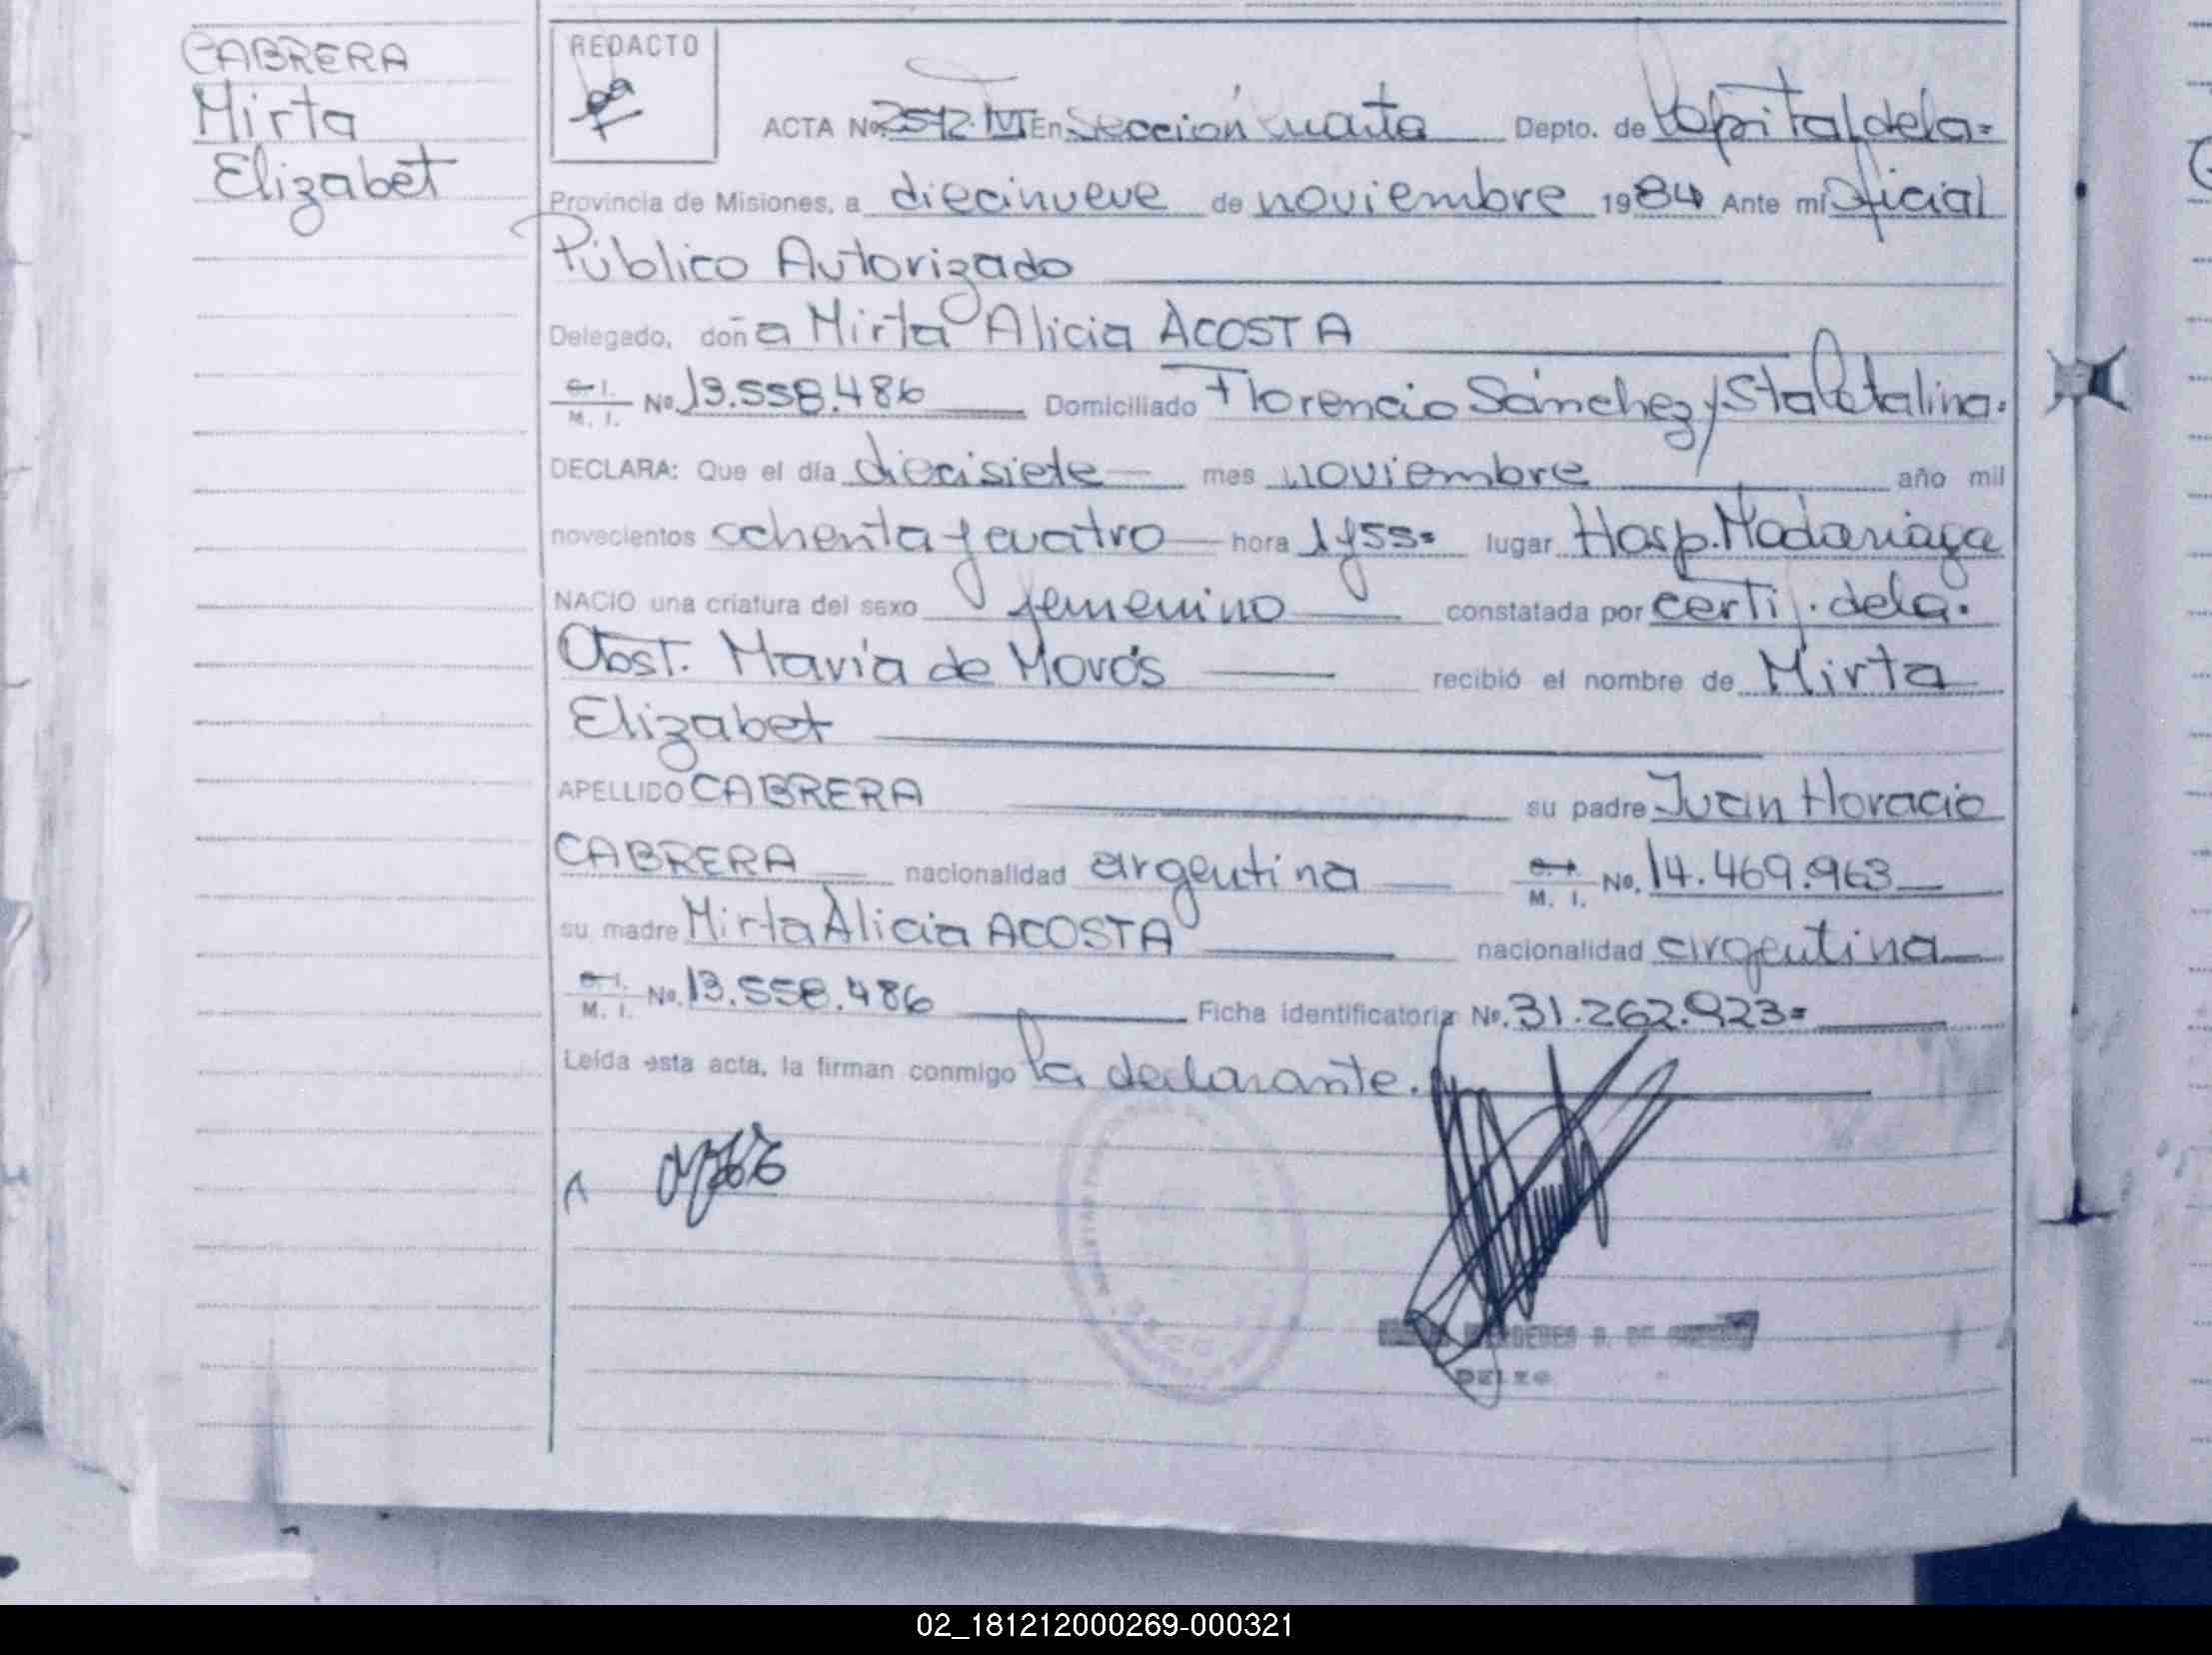 CABRERA
Mirta
Elizabet
REDACTO
ACTA No. 2512. IVT En Sección cuarta Depto. de Capital de la=
Provincia de Misiones, a diecinueve de noviembre 1984 Ante mí Oficial
Público Autorizado
Delegado, doña Mirta Alicia ACOSTA
C. I.
M. I. No. 13.558.486 Domiciliado Florencio Sánchez y Sta Catalina.
DECLARA: Que el día diecisiete mes noviembre año mil
novecientos ochenta y cuatro hora 1 y 55= lugar Hosp. Madariaga
NACIO una criatura del sexo femenino constatada por certif. de la.
Obst. María de Morós recibió el nombre de Mirta
Elizabet
APELLIDO CABRERA su padre Juan Horacio
CABRERA nacionalidad argentina M. I. No. 14.469.963
su madre Mirta Alicia ACOSTA nacionalidad argentina
C. I.
M. I. No. 13.558.486 Ficha identificatoria No. 31.262.923=
Leída esta acta, la firman conmigo la declarante.
DE
02_181212000269-000321